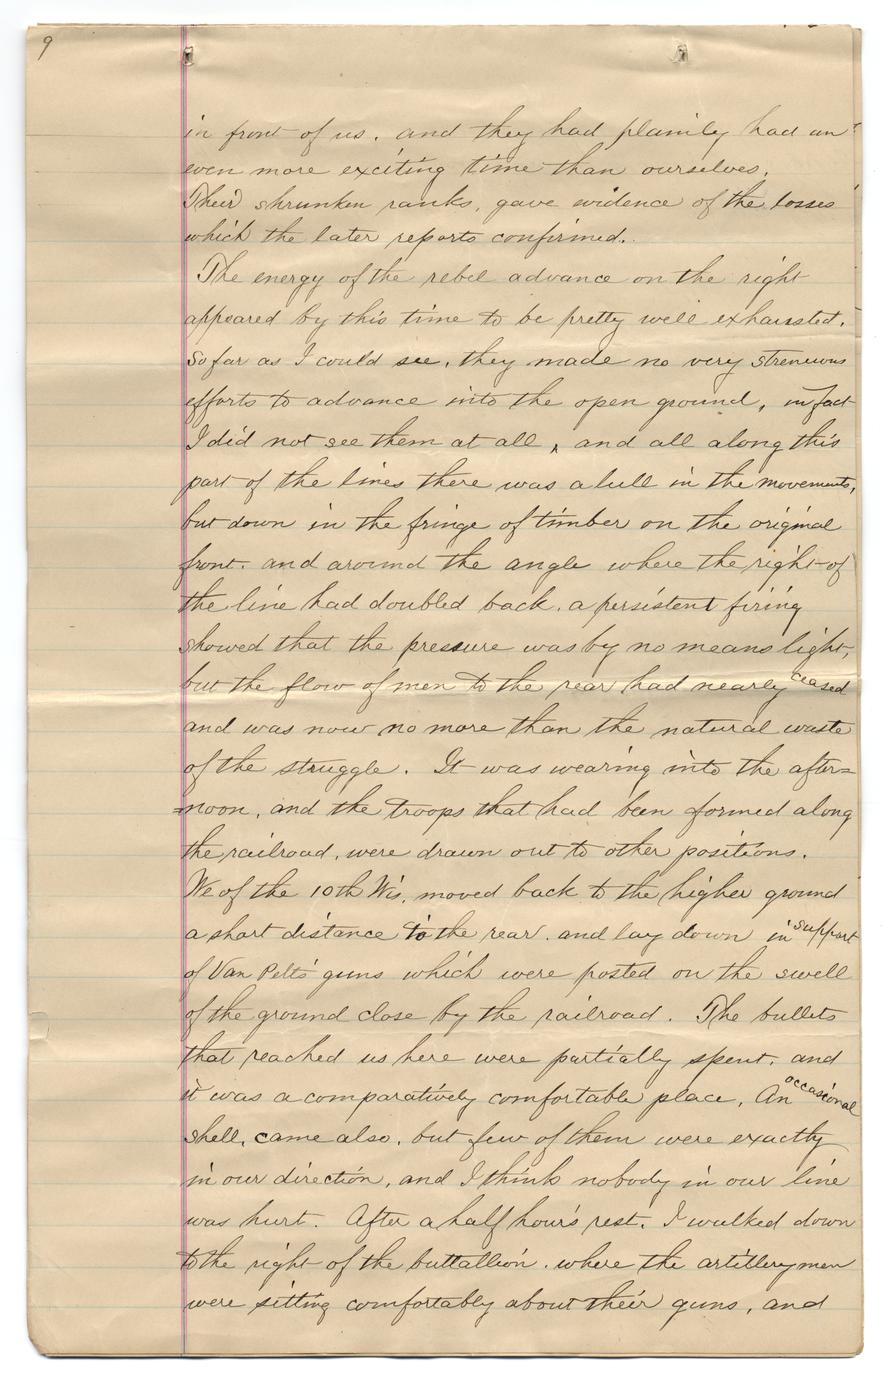 9
in front of us. and they had plainly had an
even more exciting time than ourselves.
Their shrunken ranks, gave evidence of the losses
which the later reports confirmed.
The energy of the rebel advance on the right
appeared by this time to be pretty well exhausted.
So far as I could see, they made no very strenuous
efforts to advance into the open ground, in fact
I did not see them at all, and all along this
part of the lines there was a lull in the movements,
but down in the fringe of timber on the original
front. and around the angle where the right of
the line had doubled back. a persistent firing
showed that the pressure was by no means light,
but the flow of men to the rear had nearly ceased
and was now no more than the natural waste
of the struggle. It was wearing into the after=
=noon, and the troops that had been formed along
the railroad, were drawn out to other positions.
We of the 10th Wis. moved back to the higher ground
a short distance to the rear. and lay down in support
of Van Pelts' guns which were posted on the swell
of the ground close by the railroad. The bullets
that reached us here were partially spent. and
it was a comparatively comfortable place. An occasional
shell, came also, but few of them were exactly
in our direction, and I think nobody in our line
was hurt. After a half hour's rest. I walked down
to the right of the battallion. where the artillerymen
were sitting comfortably about their guns, and